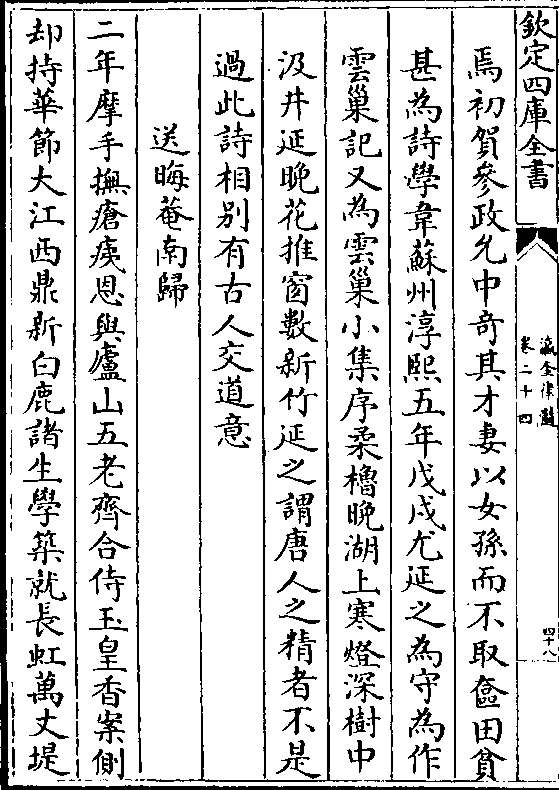 欽定四庫全書
瀛奎律髓
卷二十四
四十八
焉初賀參政允中奇其才妻以女孫而不取奩田貧
甚為詩學韋蘇州淳熙五年戊戌尤延之為守為作
雲巢記又為雲巢小集序柔櫓晚湖上寒燈深樹中
汲井延晚花推窗數新竹延之謂唐人之精者不是
過此詩相别有古人交道意
送晦菴南歸
二年摩手撫瘡痍恩與廬山五老齊合侍玉皇香案側
却持華節大江西鼎新白鹿諸生學築就長虹萬丈堤